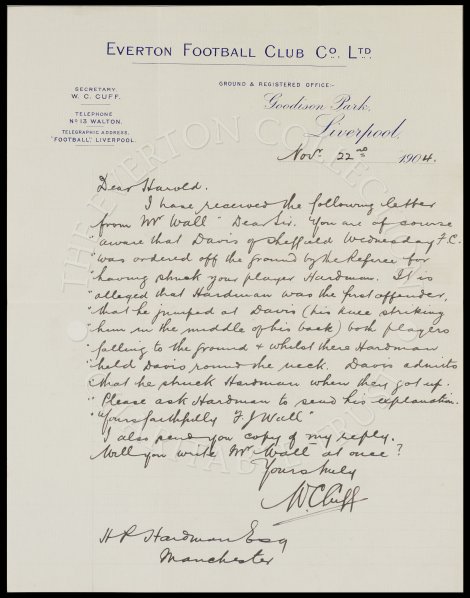 EVERTON FOOTBALL CLUB CO. LTD.
SECRETARY.
W. C. CUFF.
TELEPHONE
NO 13 WALTON.
TELEGRAPHIC ADDRESS,
"FOOTBALL", LIVERPOOL.
GROUND & REGISTERED OFFICE:-
Goodison Park,
Liverpool,
Novr 22nd 1904.
Dear Harold.
I have received the following letter
from Mr Wall "Dear Sir. You are of course
"aware that Davis of Sheffield Wednesday F.C.
"was ordered off the ground by the Referee for
"having struck your player Hardman. It is
"alleged that Hardman was the first offender,
"that he jumped at Davis (his knee striking
"him in the middle of his back) both players
"falling to the ground & whilst there Hardman
"held Davis round the neck. Davis admits
"that he struck Hardman when they got up.
"Please ask Hardman to send his explanation.
"Yours faithfully F. J Wall"
I also send you copy of my reply.
Will you write Mr Wall at once?
Yours truly
W. C. Cuff
H P Hardman Esq
Manchester
THE EVERTON COLLECTION
CHARITABLE TRUST